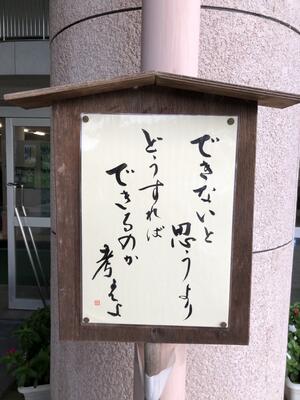 できないと
思うより
どうすれば
できるのか
考えよ